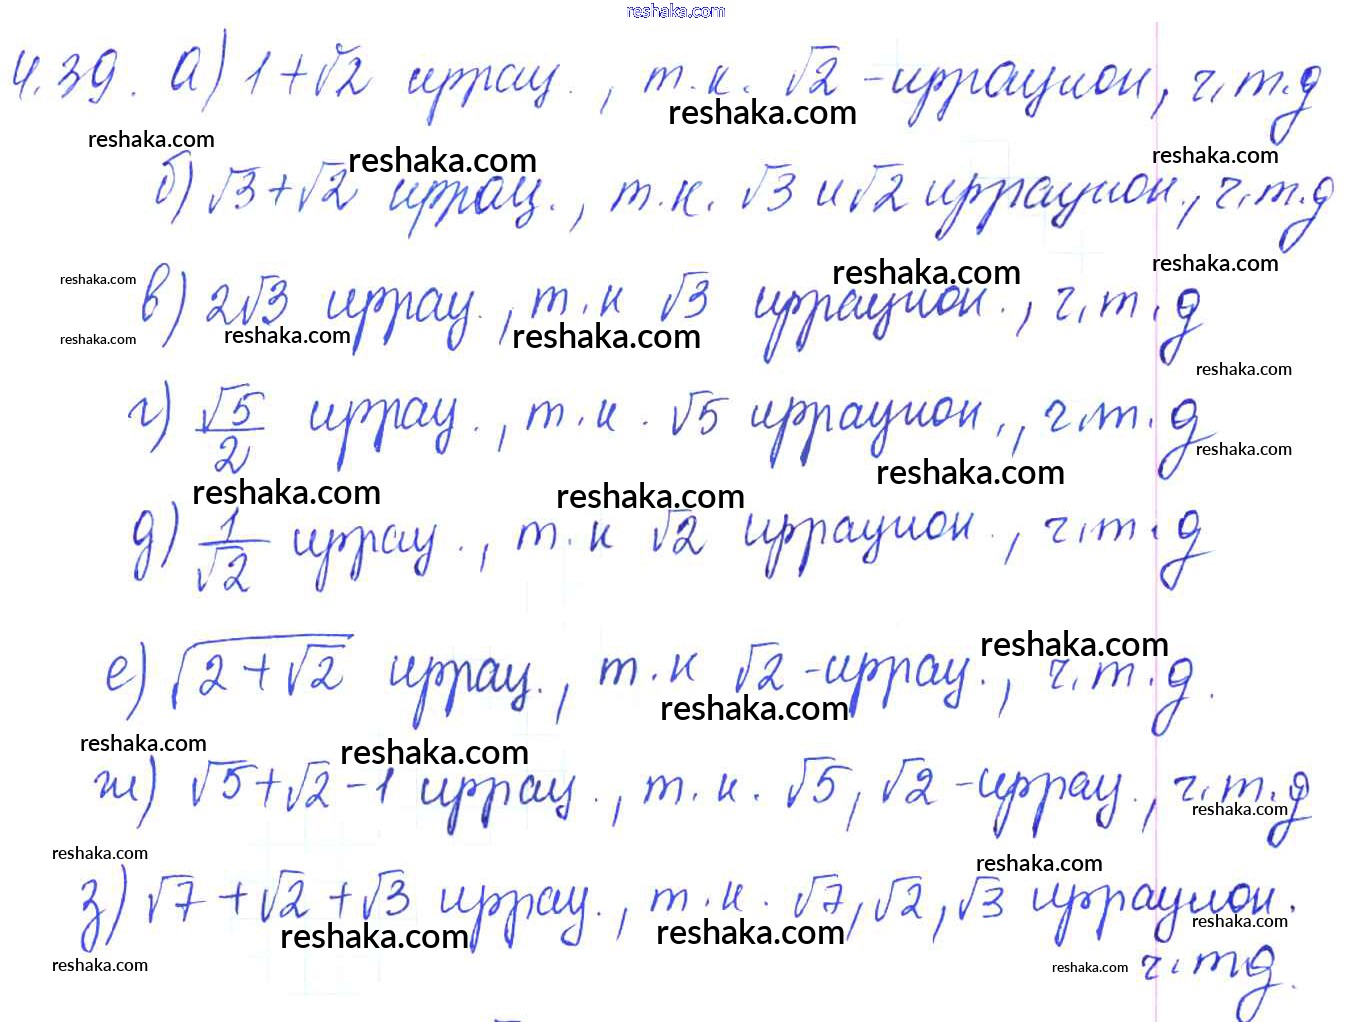 reshaka.com
4.39. а) 1+√2 иррац., т.к. √2 -иррацион, ч.т.д
reshaka.com
reshaka.com
reshaka.com
reshaka.com
б) √3+√2 иррац., т.к. √3 и √2 иррацион., ч.т.д
reshaka.com
reshaka.com
reshaka.com
в) 2√3 иррац., т.к √3 иррацион., ч.т.д
reshaka.com
reshaka.com
reshaka.com
reshaka.com
г) √5/2 иррац., т.к. √5 иррацион., ч.т.д
reshaka.com
reshaka.com
reshaka.com
reshaka.com
д) 1/√2 иррац., т.к √2 иррацион., ч.т.д
reshaka.com
е) √(2+√2) иррац., т.к √2 -иррац., ч.т.д.
reshaka.com
reshaka.com
reshaka.com
ж) √5+√2-1 иррац., т.к. √5, √2 -иррац., ч.т.д
reshaka.com
reshaka.com
reshaka.com
з) √7+√2+√3 иррац., т.к. √7, √2, √3 иррацион.
reshaka.com
reshaka.com
reshaka.com
reshaka.com
reshaka.com
ч.тд.